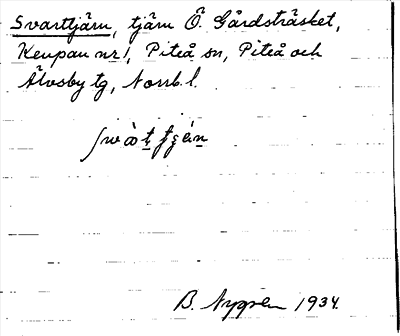 Svarttjärn, tjärn Ö. Gårdsträsket,
nr 1, Piteå sn, Piteå och
Älvsby tg, Norrb. l.
B. Nygren 1934